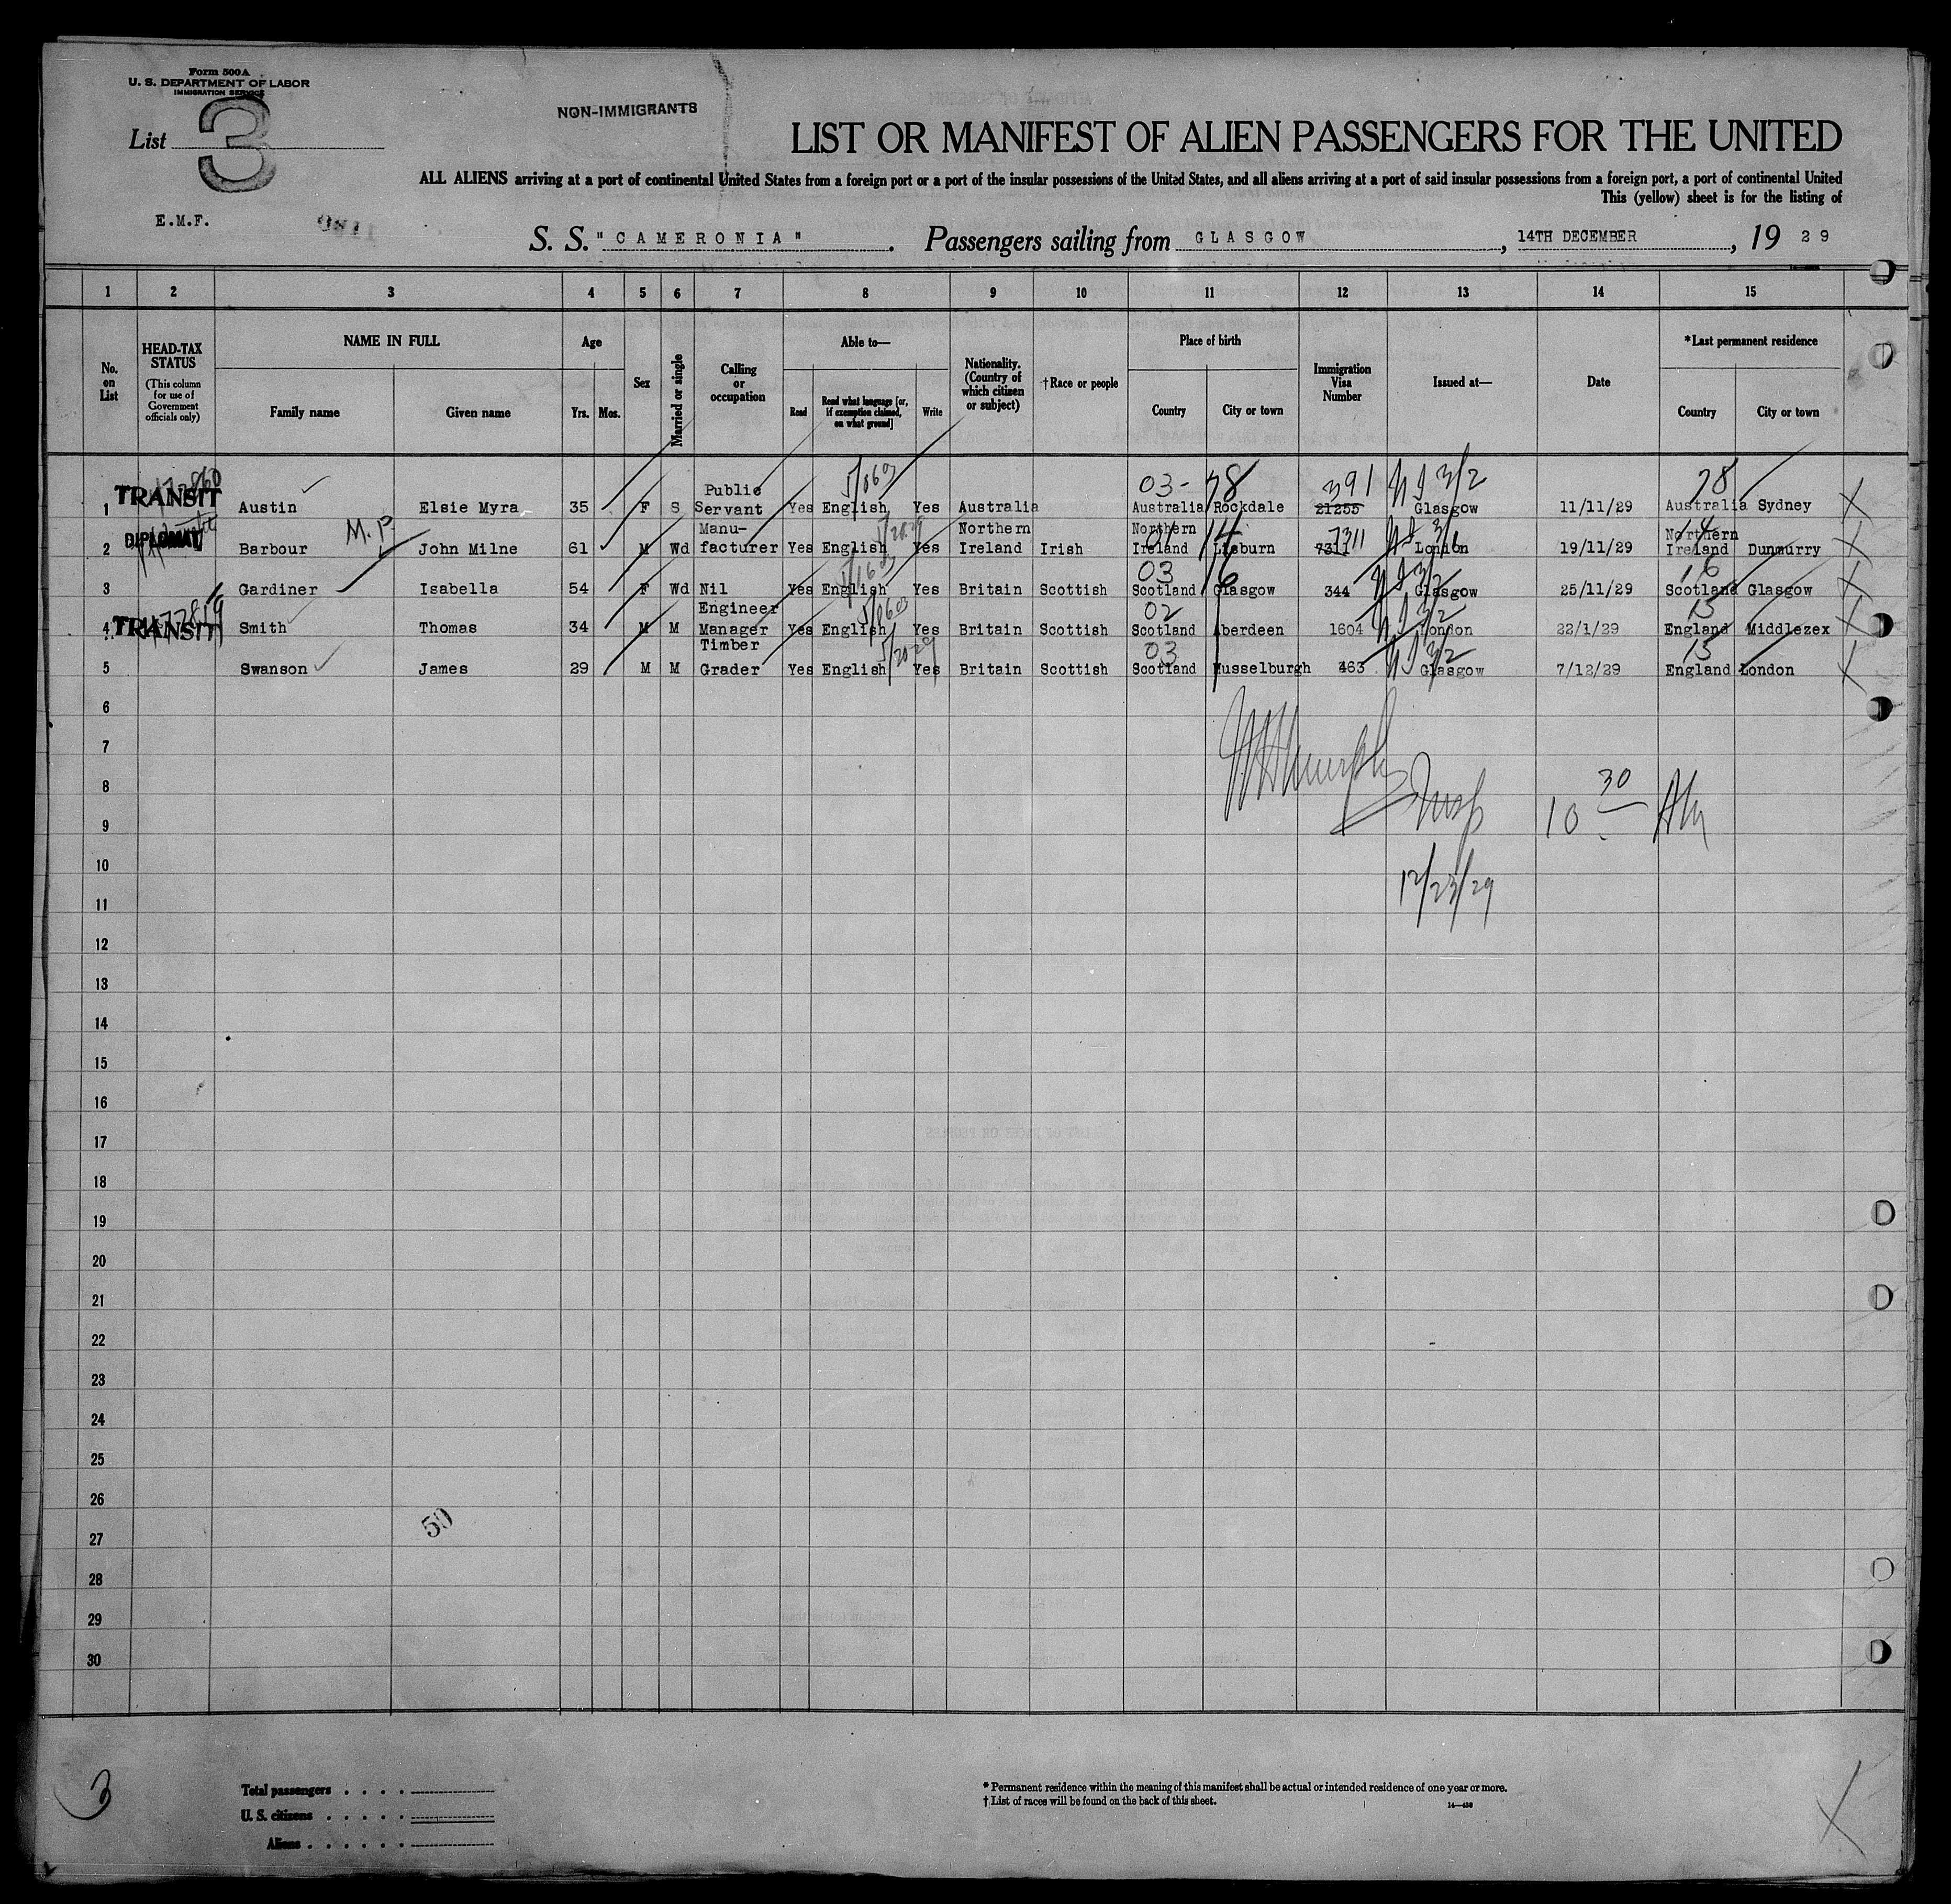 Form 500A
U. S. DEPARTMENT OF LABOR
IMMIGRATION SERVICE
List 3
NON-IMMIGRANTS
LIST OR MANIFEST OF ALIEN PASSENGERS FOR THE UNITED
ALL ALIENS arriving at a port of continental United States from a foreign port or a port of the insular possessions of the United States, and all aliens arriving at a port of said insular possessions from a foreign port, a port of continental United
This (yellow) sheet is for the listing of
E.M.F.
S. S. "CAMERONIA". Passengers sailing from GLASGOW, 14TH DECEMBER, 1929
1 2 3 4 5 6 7 8 9 10 11 12 13 14 15
No. on List
HEAD-TAX STATUS (This column for use of Government officials only)
NAME IN FULL
Family name Given name
Age
Yrs. Mos.
Sex
Married or single
Calling or occupation
Able to—
Read Read what language [or, if exemption claimed, on what ground] Write
Nationality. (Country of which citizen or subject)
†Race or people
Place of birth
Country City or town
Immigration Visa Number
Issued at—
Date
*Last permanent residence
Country City or town
1 TRANSIT Austin Elsie Myra 35 F S Public Servant Yes English Yes Australia 03- 78 Australia Rockdale 391 21255 Glasgow 11/11/29 78 Australia Sydney X
2 DIPLOMAT Barbour M.P. John Milne 61 M Wd Manu-facturer Yes English Yes Northern Ireland Irish 01 14 Northern Ireland Lisburn 7311 7311 London 19/11/29 14 Northern Ireland Dunmurry X
3 Gardiner Isabella 54 F Wd Nil Yes English Yes Britain Scottish 03 16 Scotland Glasgow 344 Glasgow 25/11/29 16 Scotland Glasgow X
4 TRANSIT Smith Thomas 34 M M Engineer Manager Yes English Yes Britain Scottish 02 Scotland Aberdeen 1604 London 22/1/29 15 England Middlezex X
5 Swanson James 29 M M Timber Grader Yes English Yes Britain Scottish 03 Scotland Musselburgh 463 Glasgow 7/12/29 15 England London X
6
7
8
9
Insp 10 30 AM
10
12/23/29
11
12
13
14
15
16
17
18
19
20
21
22
23
24
25
26
50
27
28
29
30
3
Total passengers . . . .
U. S. citizens . . . . .
Aliens . . . . . .
* Permanent residence within the meaning of this manifest shall be actual or intended residence of one year or more.
† List of races will be found on the back of this sheet.
14—438
X